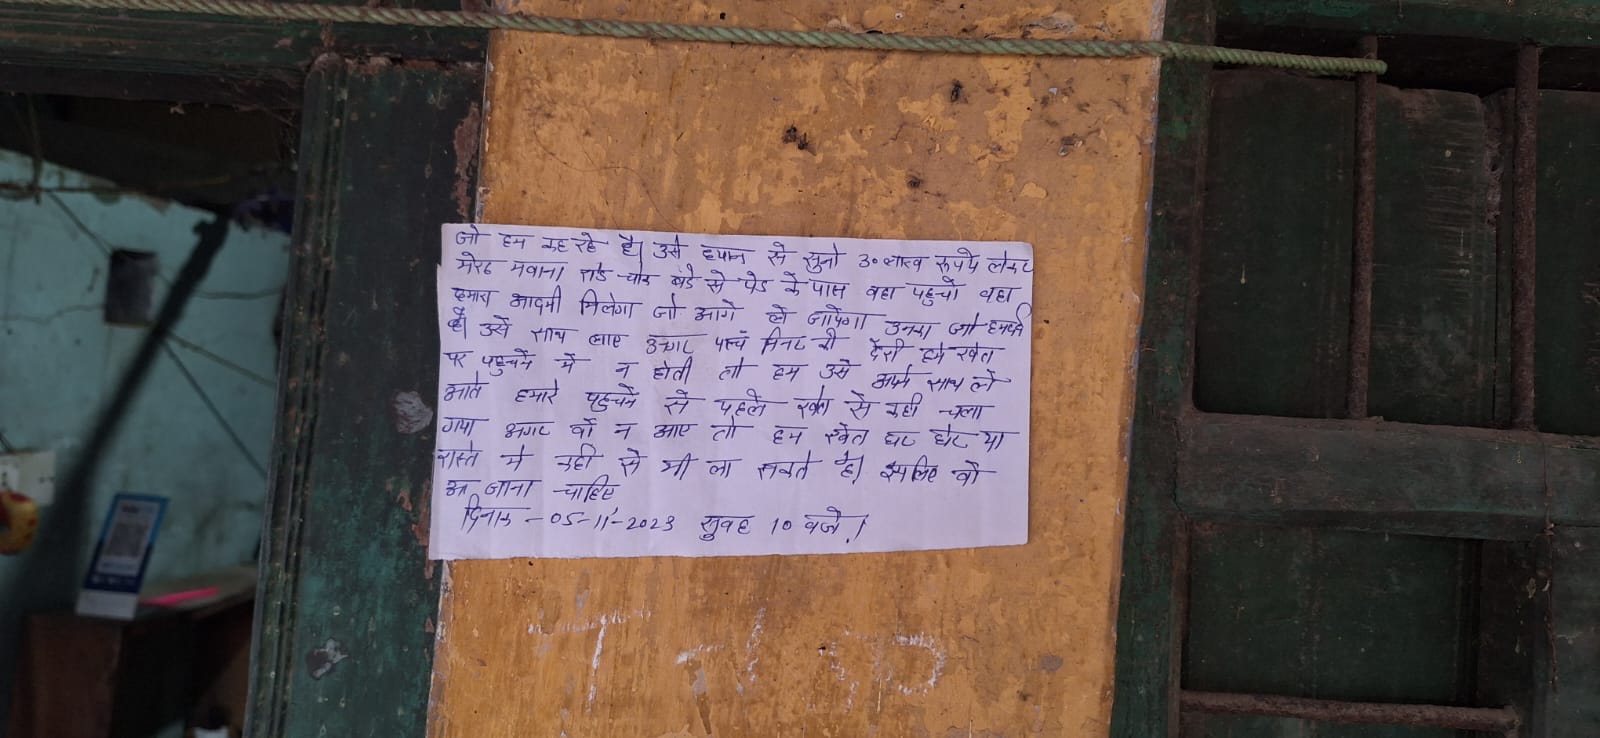 जो हम कह रहे है। उसे ध्यान से सुनो 30 लाख रूपये लेकर
मेरठ मवाना रोड बडे से पेड के पास वहा पहुचों वहा
हमारा आदमी मिलेगा जो आगे ले जायेगा उनका जो हमारी
है। उसे साथ लाए अगर पाचँ मिनट की देरी हमे खेत
पर पहुचने में न होती तो हम उसे अपने साथ ले
आते हमारे पहुचने से पहले से कही चला
गया अगर वों न आए तो हम खेत घर या
रास्ते मे कही से भी ला सकते है। इसलिए वो
आ जाना चाहिए
दिनाक - 05-11-2023 सुबह 10 बजे।